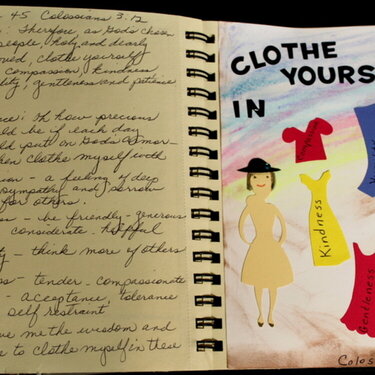 45 Colossians 3:12
: Therefore, as God's chosen
people, holy and dearly
loved, clothe yourself
compassion, kindness
lity, gentleness and patience
oh how precious
ld be if each day
ld put on God's
hen clothe myself with
ion - a feeling of deep
sympathy and sorrow
for others.
ss - be friendly - generous
considerate - helpful
ty - think more of others
ss - tender - compassionate
- acceptance, tolerance
self restraint
ve me the wisdom and
e to clothe myself in these
CLOTHE
YOURS
IN
Kindness
Gentleness
Colos